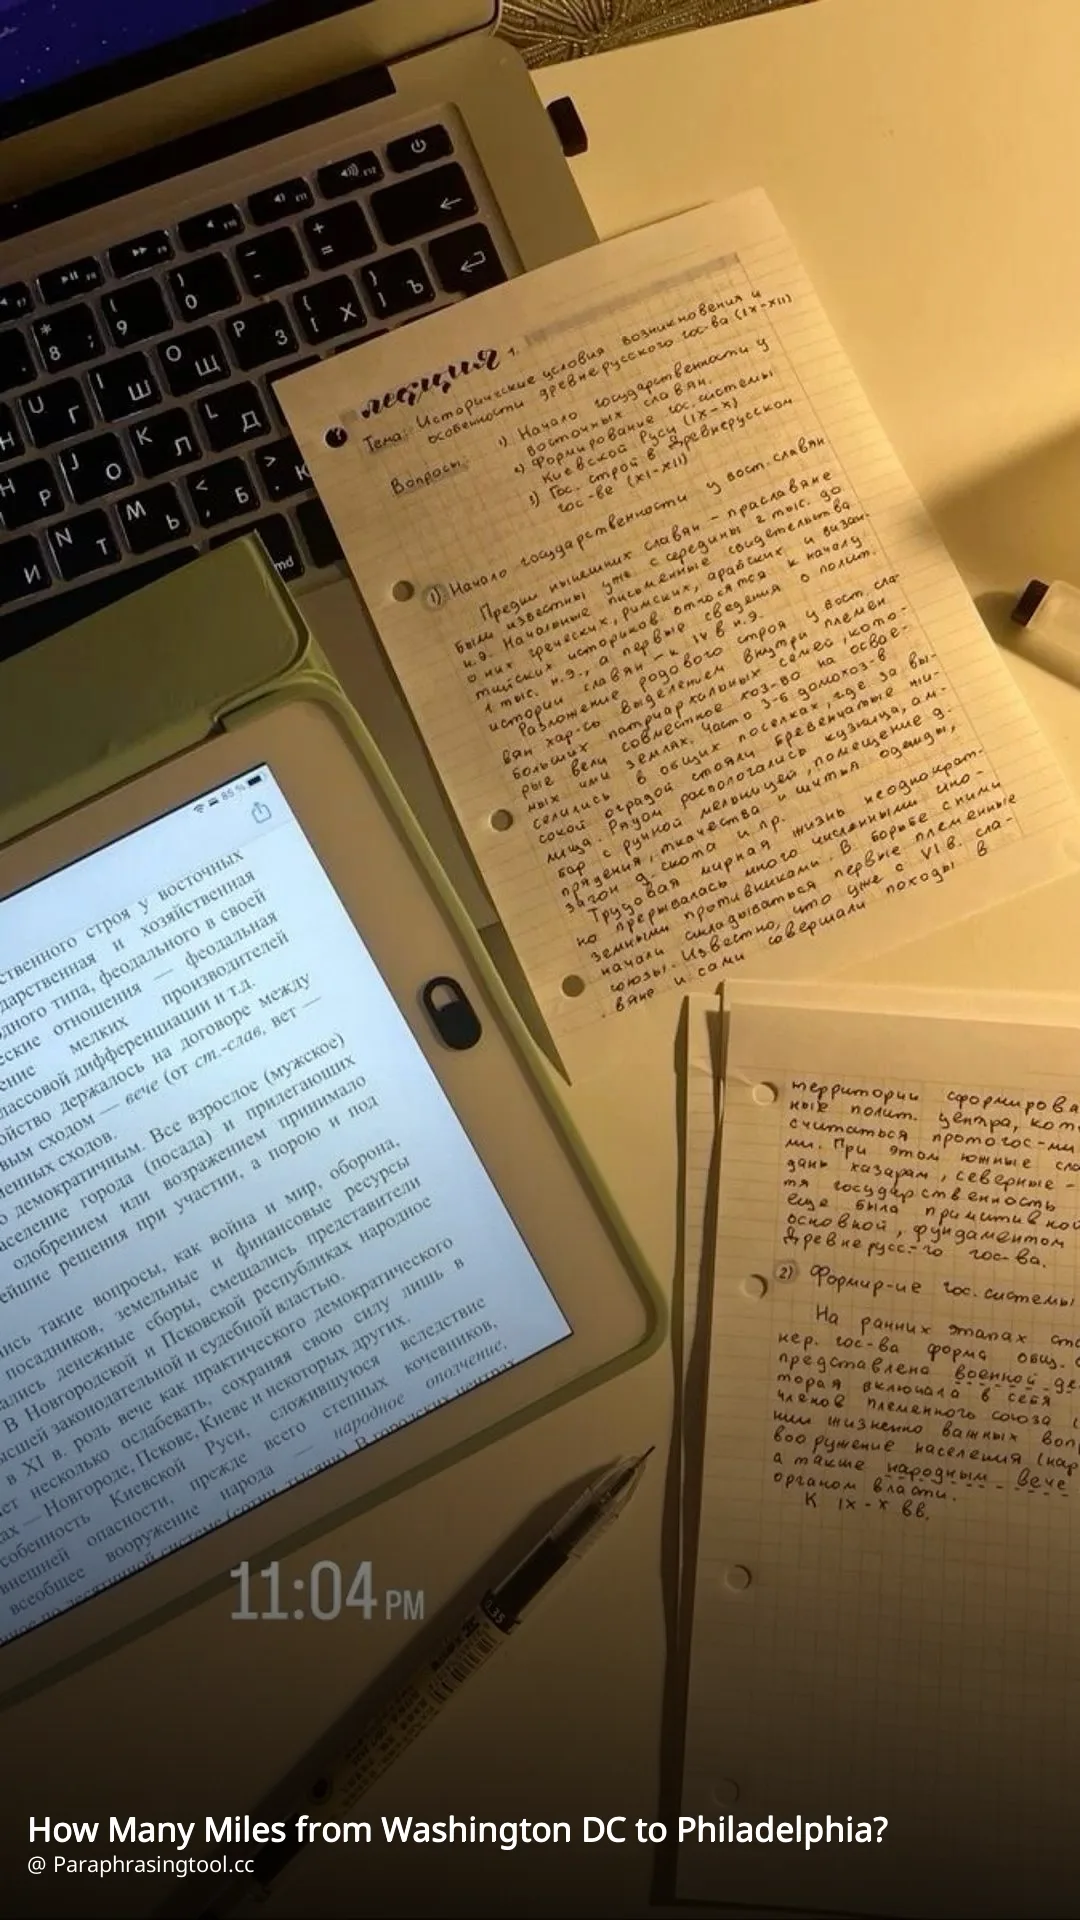 лекция 1.
Тема: Исторические условия возникновения и
особенности древнерусского гос-ва (IX-XII)
Вопросы: 1) Начало государственности у
восточных славян.
2) Формирование гос. системы
Киевской Руси (IX-X)
3) Гос. строй в Древнерусском
гос-ве (XI-XII)
1) Начало государственности у вост. славян
Предки нынешних славян - праславяне
были известны уже с середины 2 тыс. до
н.э. Начальные письменные свидетельства
о них греческих, римских, арабских и визан-
тийских историков относятся к началу
1 тыс. н.э., а первые сведения о полит.
истории славян - к IV в н.э.
Разложение родового строя у вост. сла-
вян хар-сь выделением внутри племен
больших патриархальных семей, кото-
рые вели совместное хоз-во на освое-
ных ими землях. Часто 3-6 домохоз-в
селились в общих поселках, где за вы-
сокой оградой стояли бревенчатые жи-
лища. Рядом распологались кузница, ам-
бар с ручной мельницей, помещение д.
прядения, ткачества и шитья одежды,
загон д. скота и пр.
Трудовая мирная жизнь неоднократ-
но прерывалась многочисленными ино-
земными противниками. В борьбе с ними
начали складываться первые племенные
союзы. Известно, что уже с VI в. сла-
вяне и сами совершали походы в
территории сформирова
ные полит. центра, кот
считаться протогос-ми
ми. При этом южные сло
дань хазарам, северные -
тя государственность
еще была примитивной
основной, фундаментом
Древнерусс-го гос-ва.
2) Формир-ие гос. системы
На ранних этапах ста
нер. гос-ва форма общ.
представлена военной де
торая включала в себя
членов племенного союза (
нии жизненно важных вопр
вооружение населения (нар
а также народным вече
органом власти.
К IX-X вв.
85 %
ственного строя у восточных
дарственная и хозяйственная
дного типа, феодального в своей
ские отношения — феодальная
ение мелких производителей
лассовой дифференциации и т.д.
ойство держалось на договоре между
вым сходом — вече (от ст.-слав. вет —
менных сходов.
о демократичным. Все взрослое (мужское)
аселение города (посада) и прилегающих
одобрением или возражением принимало
ейшие решения при участии, а порою и под
ись такие вопросы, как война и мир, оборона,
посадников, земельные и финансовые ресурсы
ались денежные сборы, смещались представители
В Новгородской и Псковской республиках народное
ысшей законодательной и судебной властью.
в XI в. роль вече как практического демократического
ет несколько ослабевать, сохраняя свою силу лишь в
ах — Новгороде, Пскове, Киеве и некоторых других.
собенность Киевской Руси, сложившуюся вследствие
внешней опасности, прежде всего степных кочевников,
всеобщее вооружение народа — народное ополчение,
11:04 PM
How Many Miles from Washington DC to Philadelphia?
@ Paraphrasingtool.cc